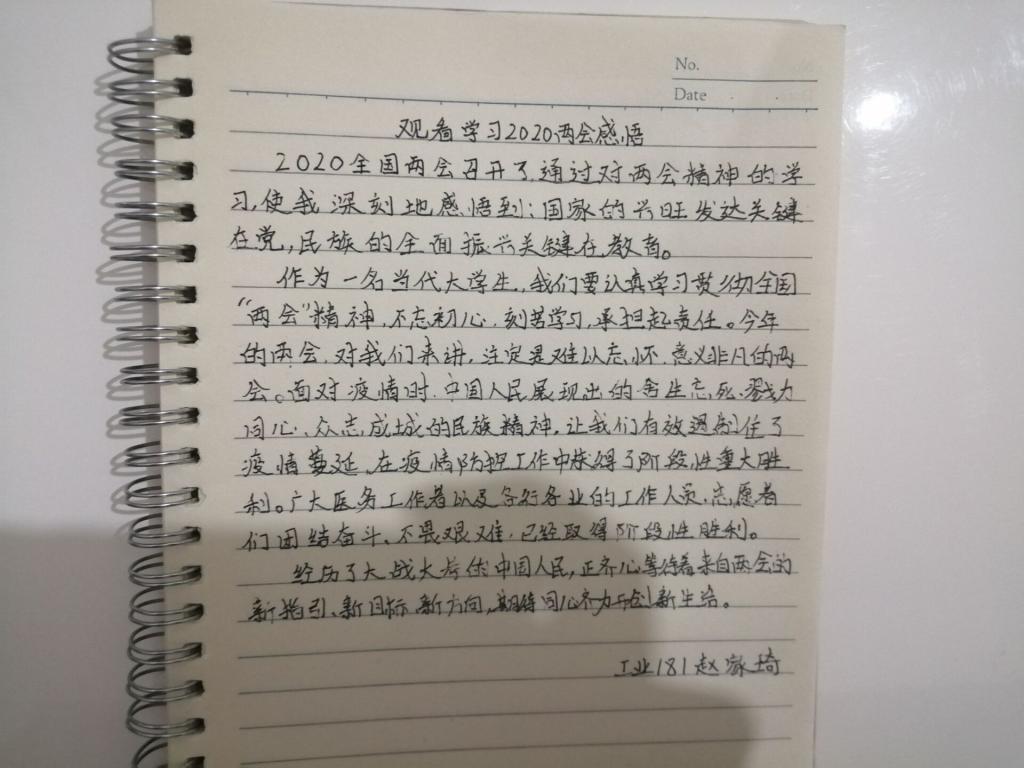 No.
Date
观看学习2020两会感悟
2020全国两会召开了,通过对两会精神的学
习,使我深刻地感悟到:国家的兴旺发达关键
在党,民族的全面振兴关键在教育。
作为一名当代大学生,我们要认真学习贯彻全国
“两会”精神,不忘初心,刻苦学习,承担起责任。今年
的两会,对我们来讲,注定是难以忘怀、意义非凡的两
会。面对疫情时,中国人民展现出的舍生忘死、戮力
同心、众志成城的民族精神,让我们有效遏制住了
疫情蔓延,在疫情防控工作中取得了阶段性重大胜
利。广大医务工作者以及各行各业的工作人员、志愿者
们团结奋斗、不畏艰难,已经取得阶段性胜利。
经历了大战大考的中国人民,正齐心等待着来自两会的
新指引、新目标、新方向,期待同心齐力开创新生活。
工业181赵家琦